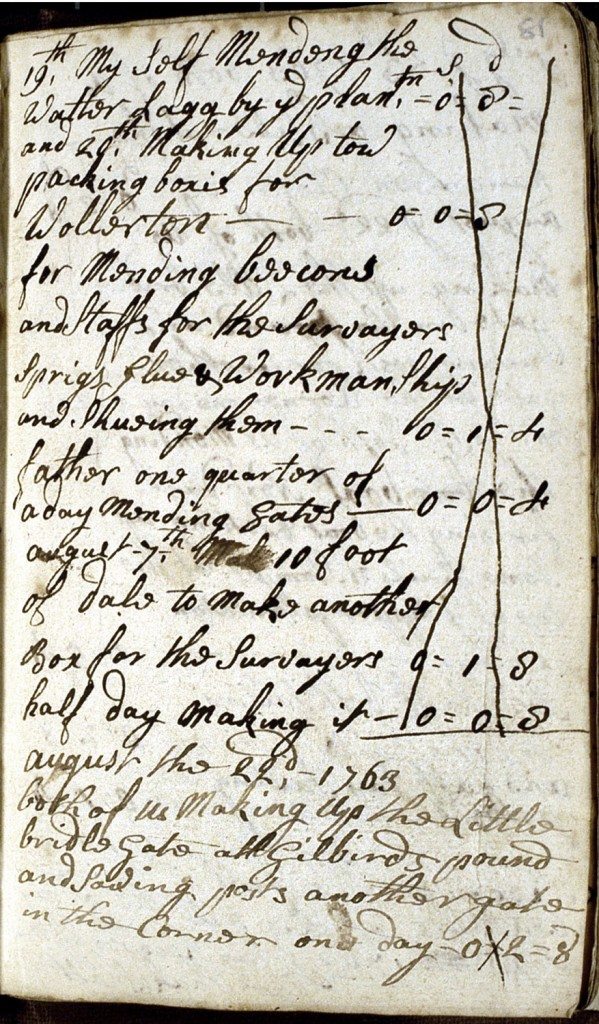 81
19th, My Self Mendeng the s d
Watter Lagg by yd plantn, = 0 = 8 =
and 29th, Making Up tow
packing boxis for
Wollerton — - 0 = 0 = 8
for Mending beecons
and Staffs for the Survayers
Sprigs Glue & Workman,Ship
and Shueing them - - - 0 = 1 = 4
father one quarter of
a day Mending Gates — 0 = 0 = 4
august - 7th, 10 foot
of dale to Make another
Box for the Survayers 0 = 1 = 8
half day Making it - 0 = 0 = 8
august the 22d, - 1763
both of us Making Up the Little
bridle Gate att Gilbirds pound
and Sawing posts another gate
in the Corner one day - 0 2 = 8